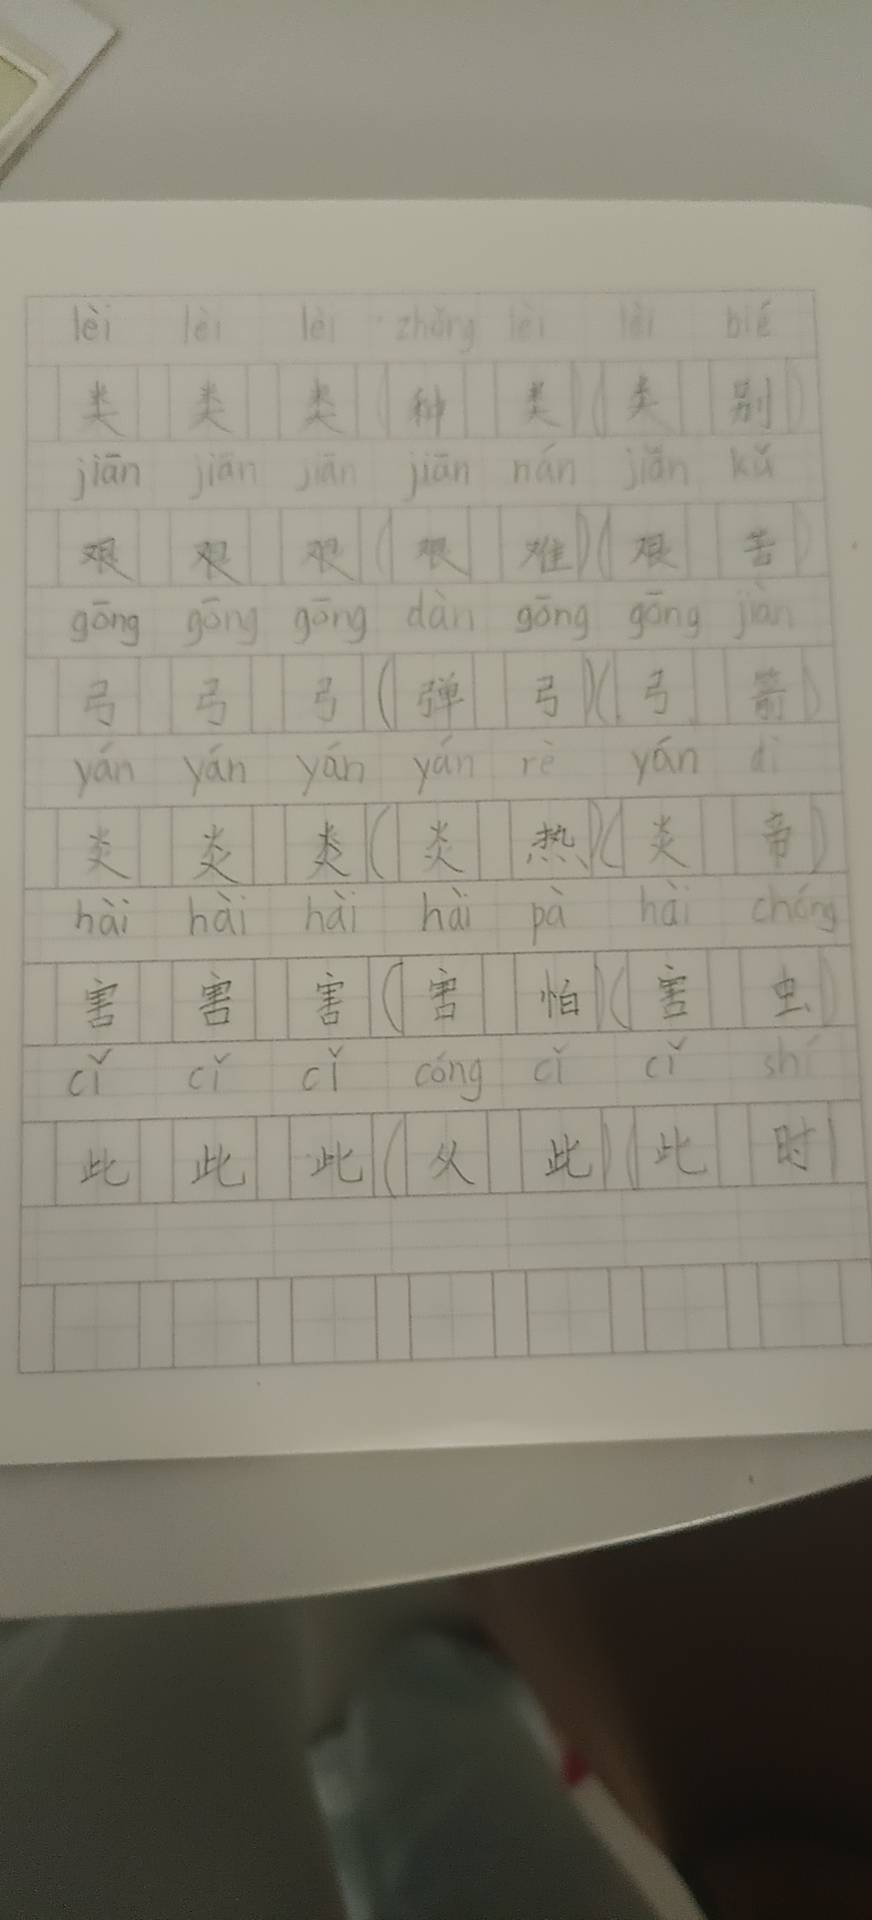 lèi lèi lèi zhǒng lèi lèi bié
类 类 类 (种 类) (类 别)
jiān jiān jiān jiān nán jiān kǔ
艰 艰 艰 (艰 难) (艰 苦)
gōng gōng gōng dàn gōng gōng jiàn
弓 弓 弓 (弹 弓) (弓 箭)
yán yán yán yán rè yán dì
炎 炎 炎 (炎 热) (炎 帝)
hài hài hài hài pà hài chóng
害 害 害 (害 怕) (害 虫)
cǐ cǐ cǐ cóng cǐ cǐ shí
此 此 此 (从 此) (此 时)